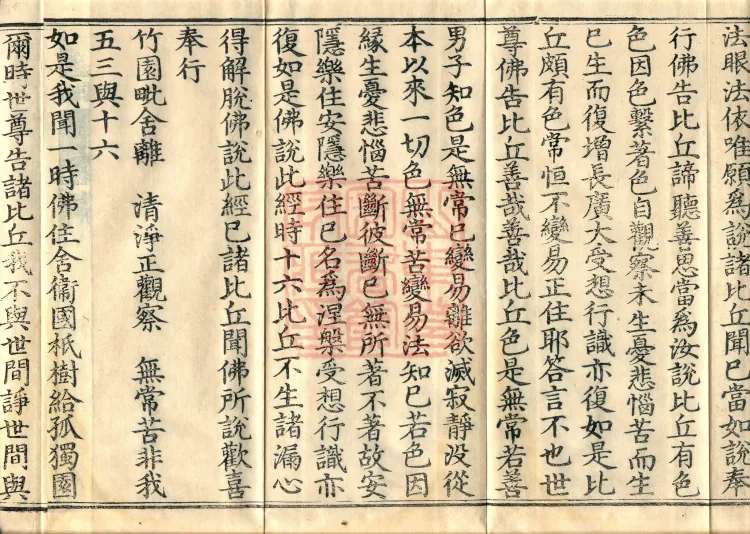 法眼法依唯願爲說諸比丘聞已當如說奉
行佛告比丘諦聽善思當爲汝說比丘有色
色因色繫著色自觀察未生憂悲惱苦而生
已生而復增長廣大受想行識亦復如是比
丘頗有色常恒不變易正住耶答言不也世
尊佛告比丘善哉善哉比丘色是無常若善
男子知色是無常已變易離欲滅寂靜没從
本以來一切色無常苦變易法知已若色因
緣生憂悲惱苦斷彼斷已無所著不著故安
隱樂住安隱樂住已名爲涅槃受想行識亦
復如是佛說此經時十六比丘不生諸漏心
得解脫佛說此經已諸比丘聞佛所說歡喜
奉行
竹園毗舍離 清淨正觀察 無常苦非我
五三與十六
如是我聞一時佛住舍衞國祇樹給孤獨園
爾時世尊告諸比丘我不與世間諍世間與